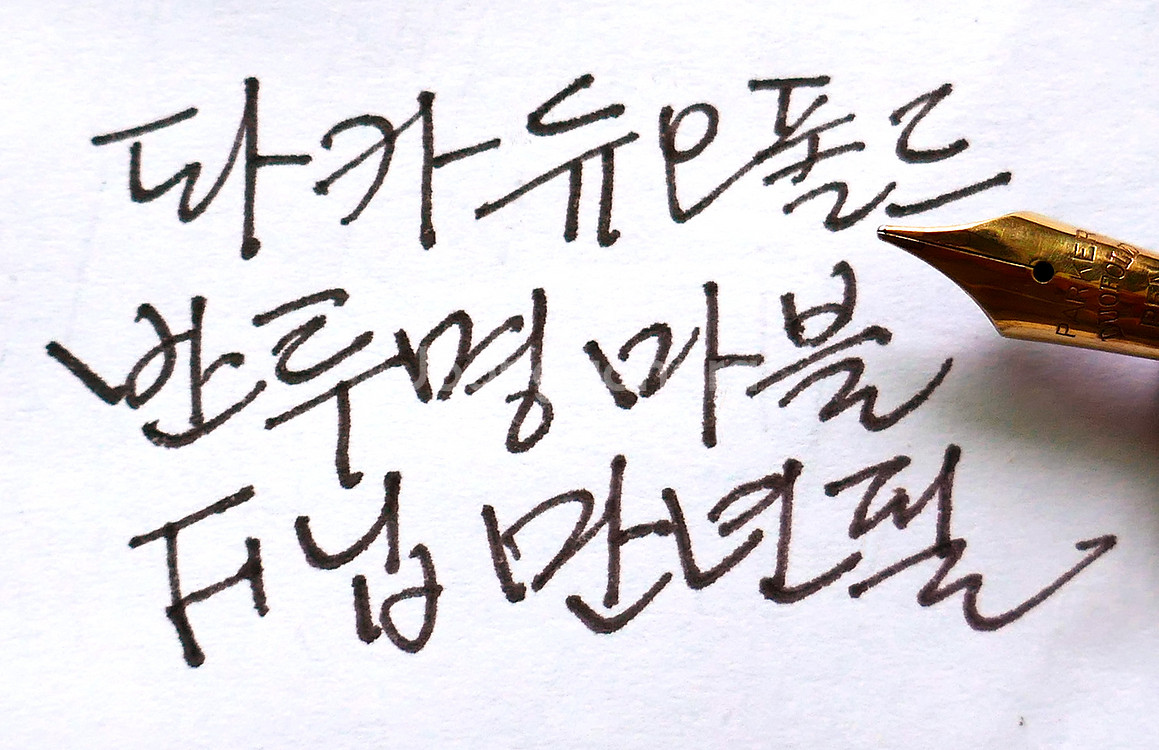 파카 듀오폴드
반투명 마블
F닙 만년필
PARKER
DUOFOLD
PEN